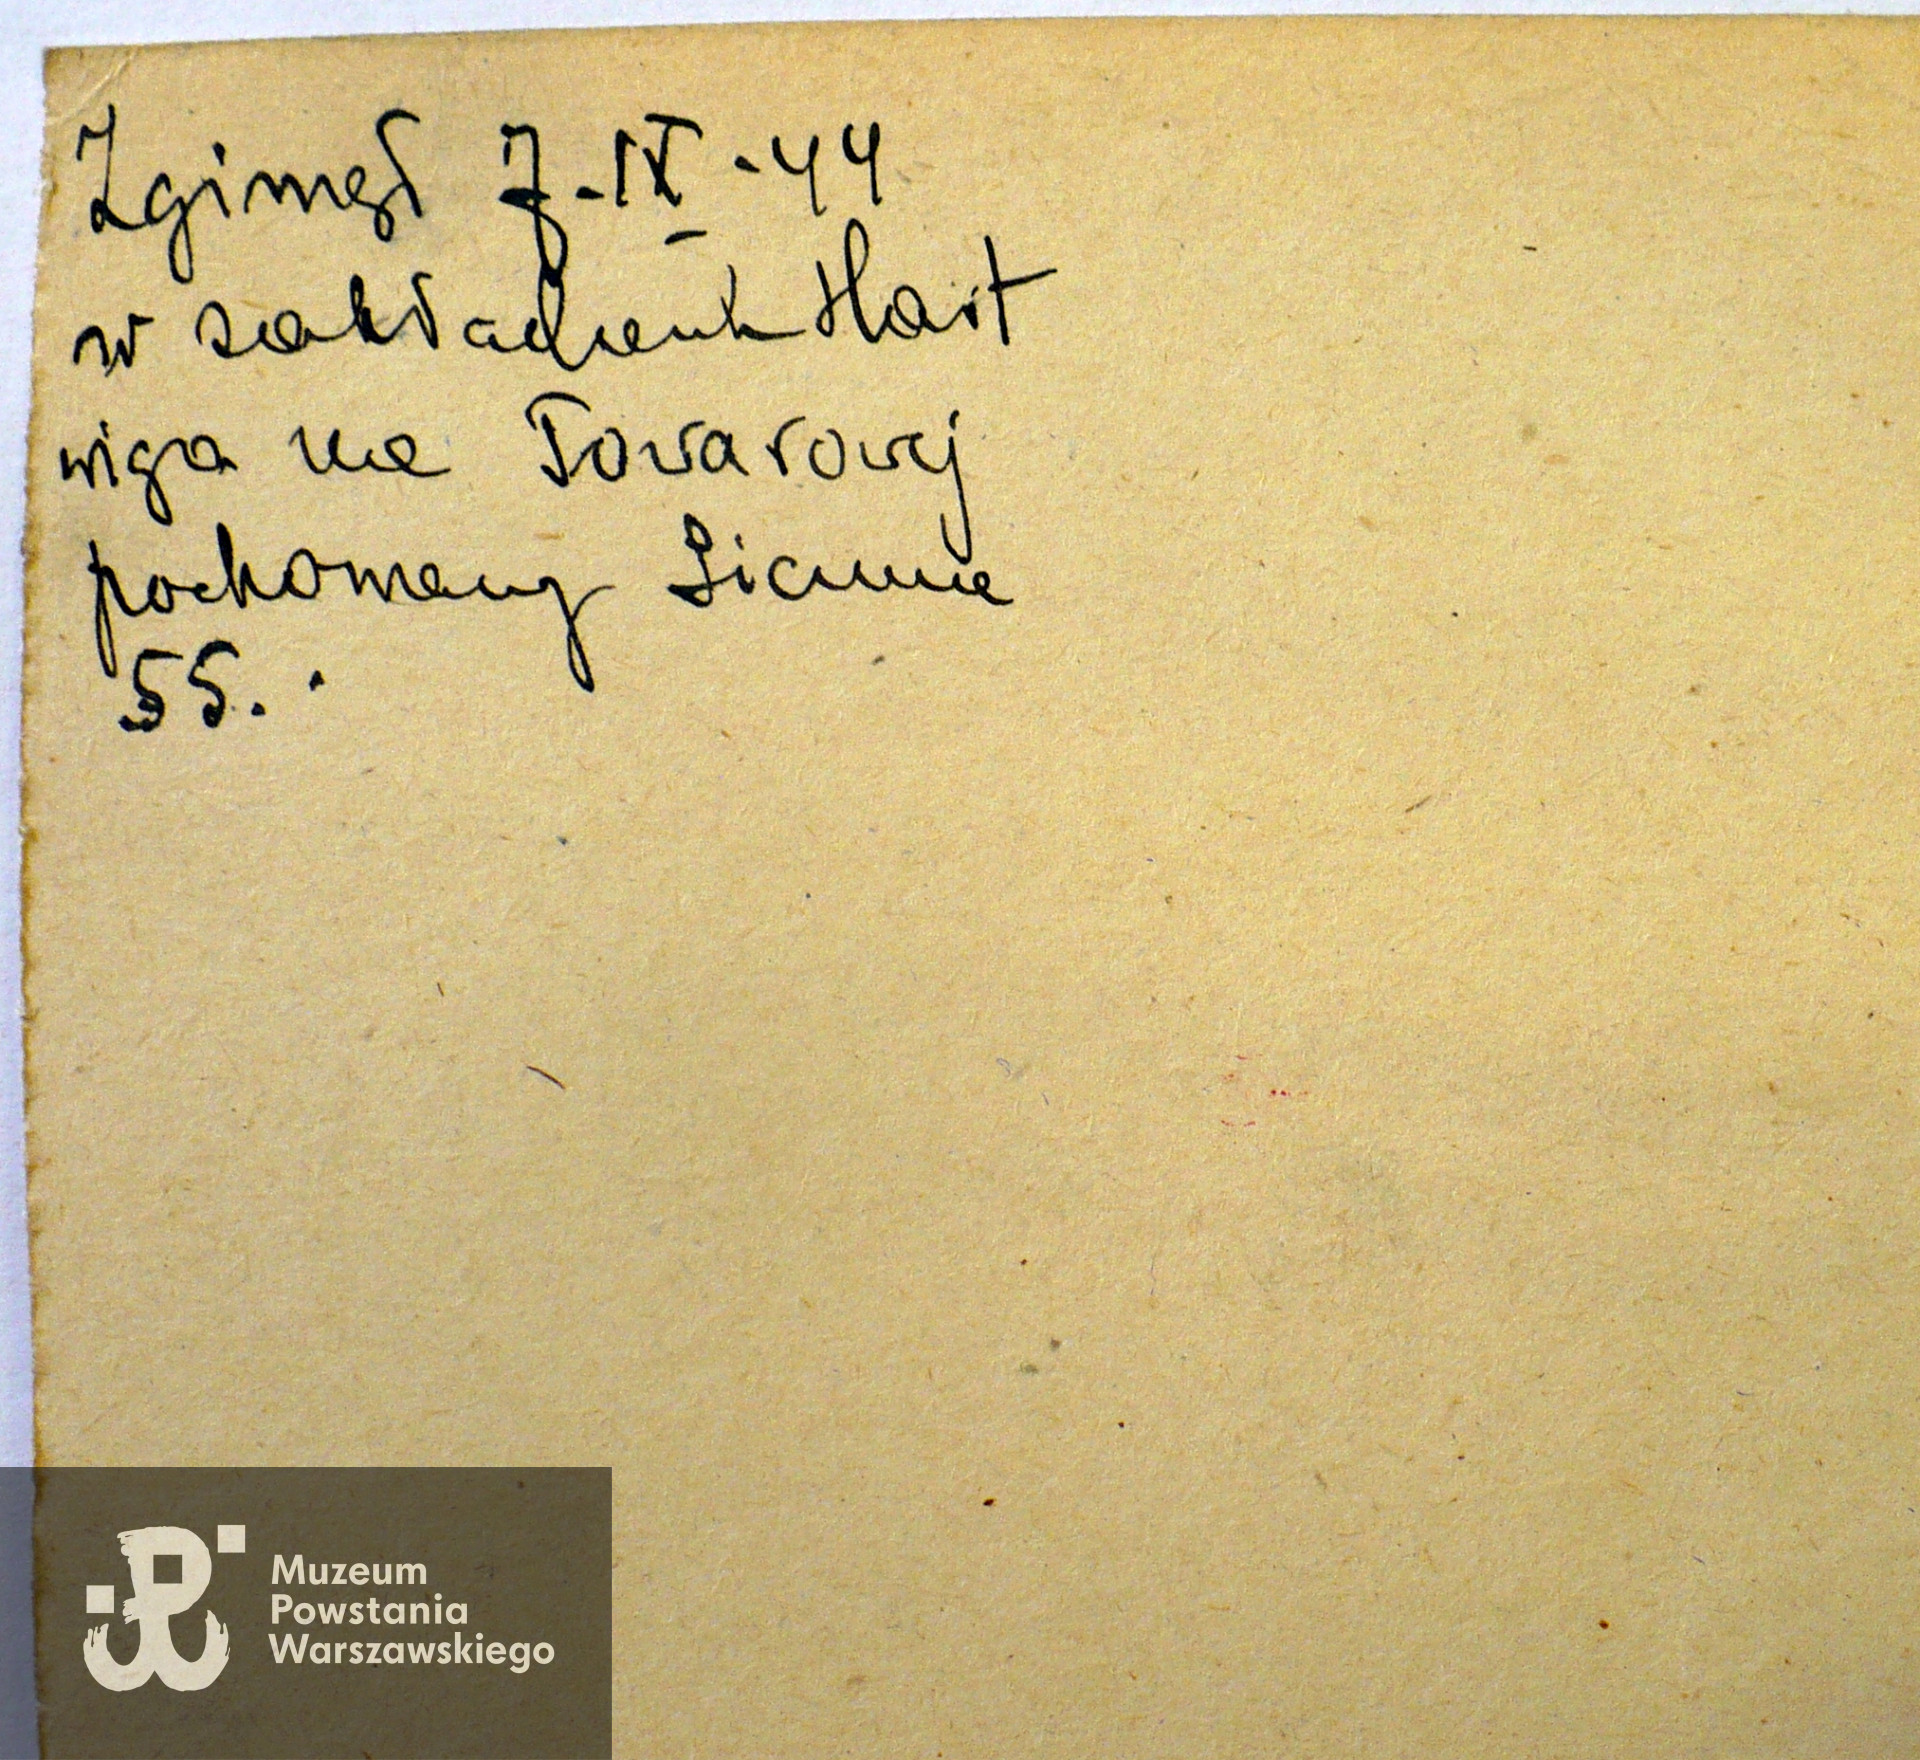 Zginął 7-IX-44
w zakładach Hart
wiga na Towarowej
pochowany Sienna
55.
Muzeum
Powstania
Warszawskiego